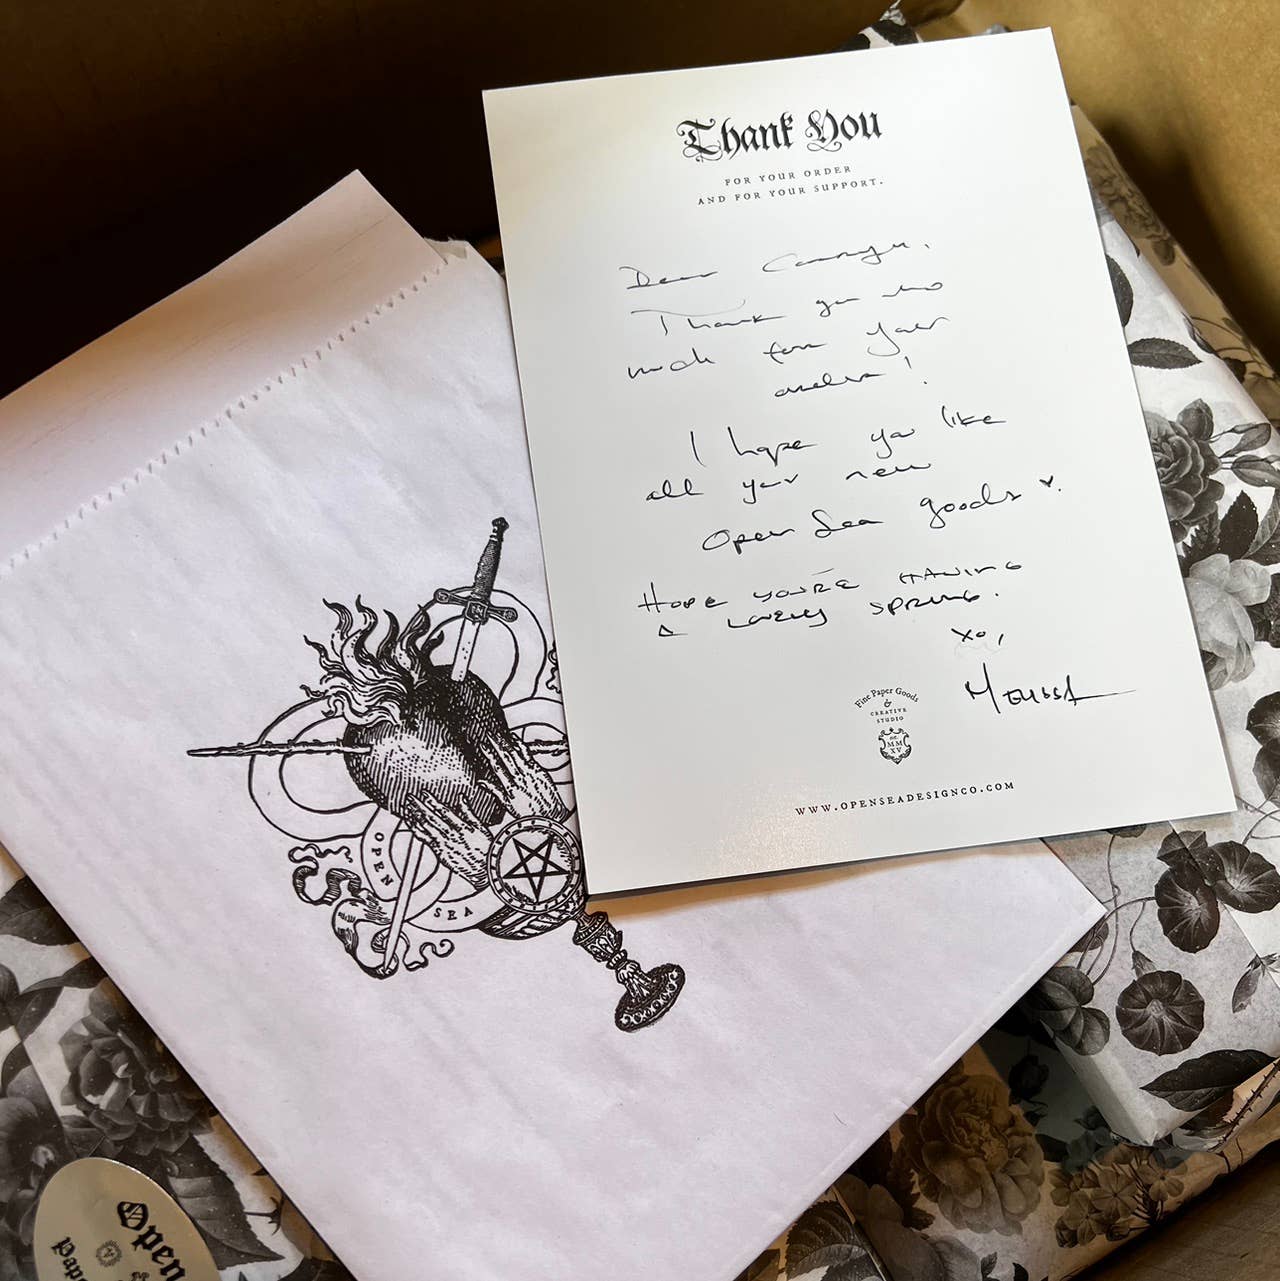 Thank You
FOR YOUR ORDER
AND FOR YOUR SUPPORT.
Dear
Thank you so
much for your
order!
I hope you like
all your new
Open Sea goods ♥.
HOPE YOU'RE HAVING
A LOVELY SPRING.
xo,
MELISSA
Fine Paper Goods
&
CREATIVE
STUDIO
EST.
MM
XV
WWW.OPENSEADESIGNCO.COM
OPEN
SEA
Open
Pape